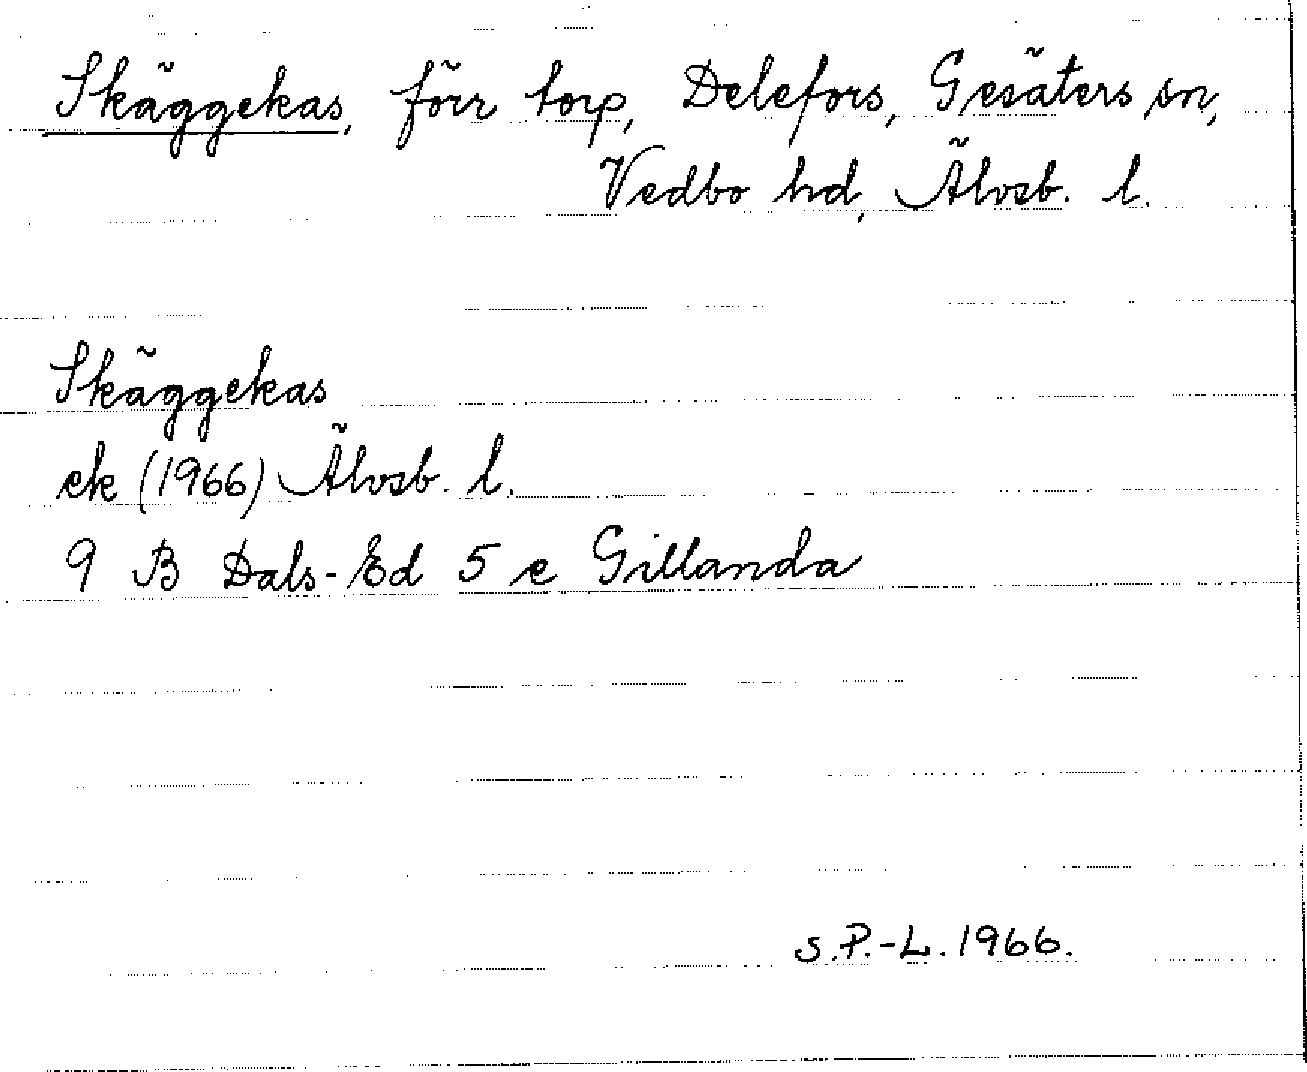 Skäggekas, förr torp, Delefors, Gesäters sn,
Vedbo hd, Älvsb. l.
Skäggekas
ek (1966) Älvsb. l.
9 B Dals-Ed 5 e Gillanda
S.P.-L. 1966.